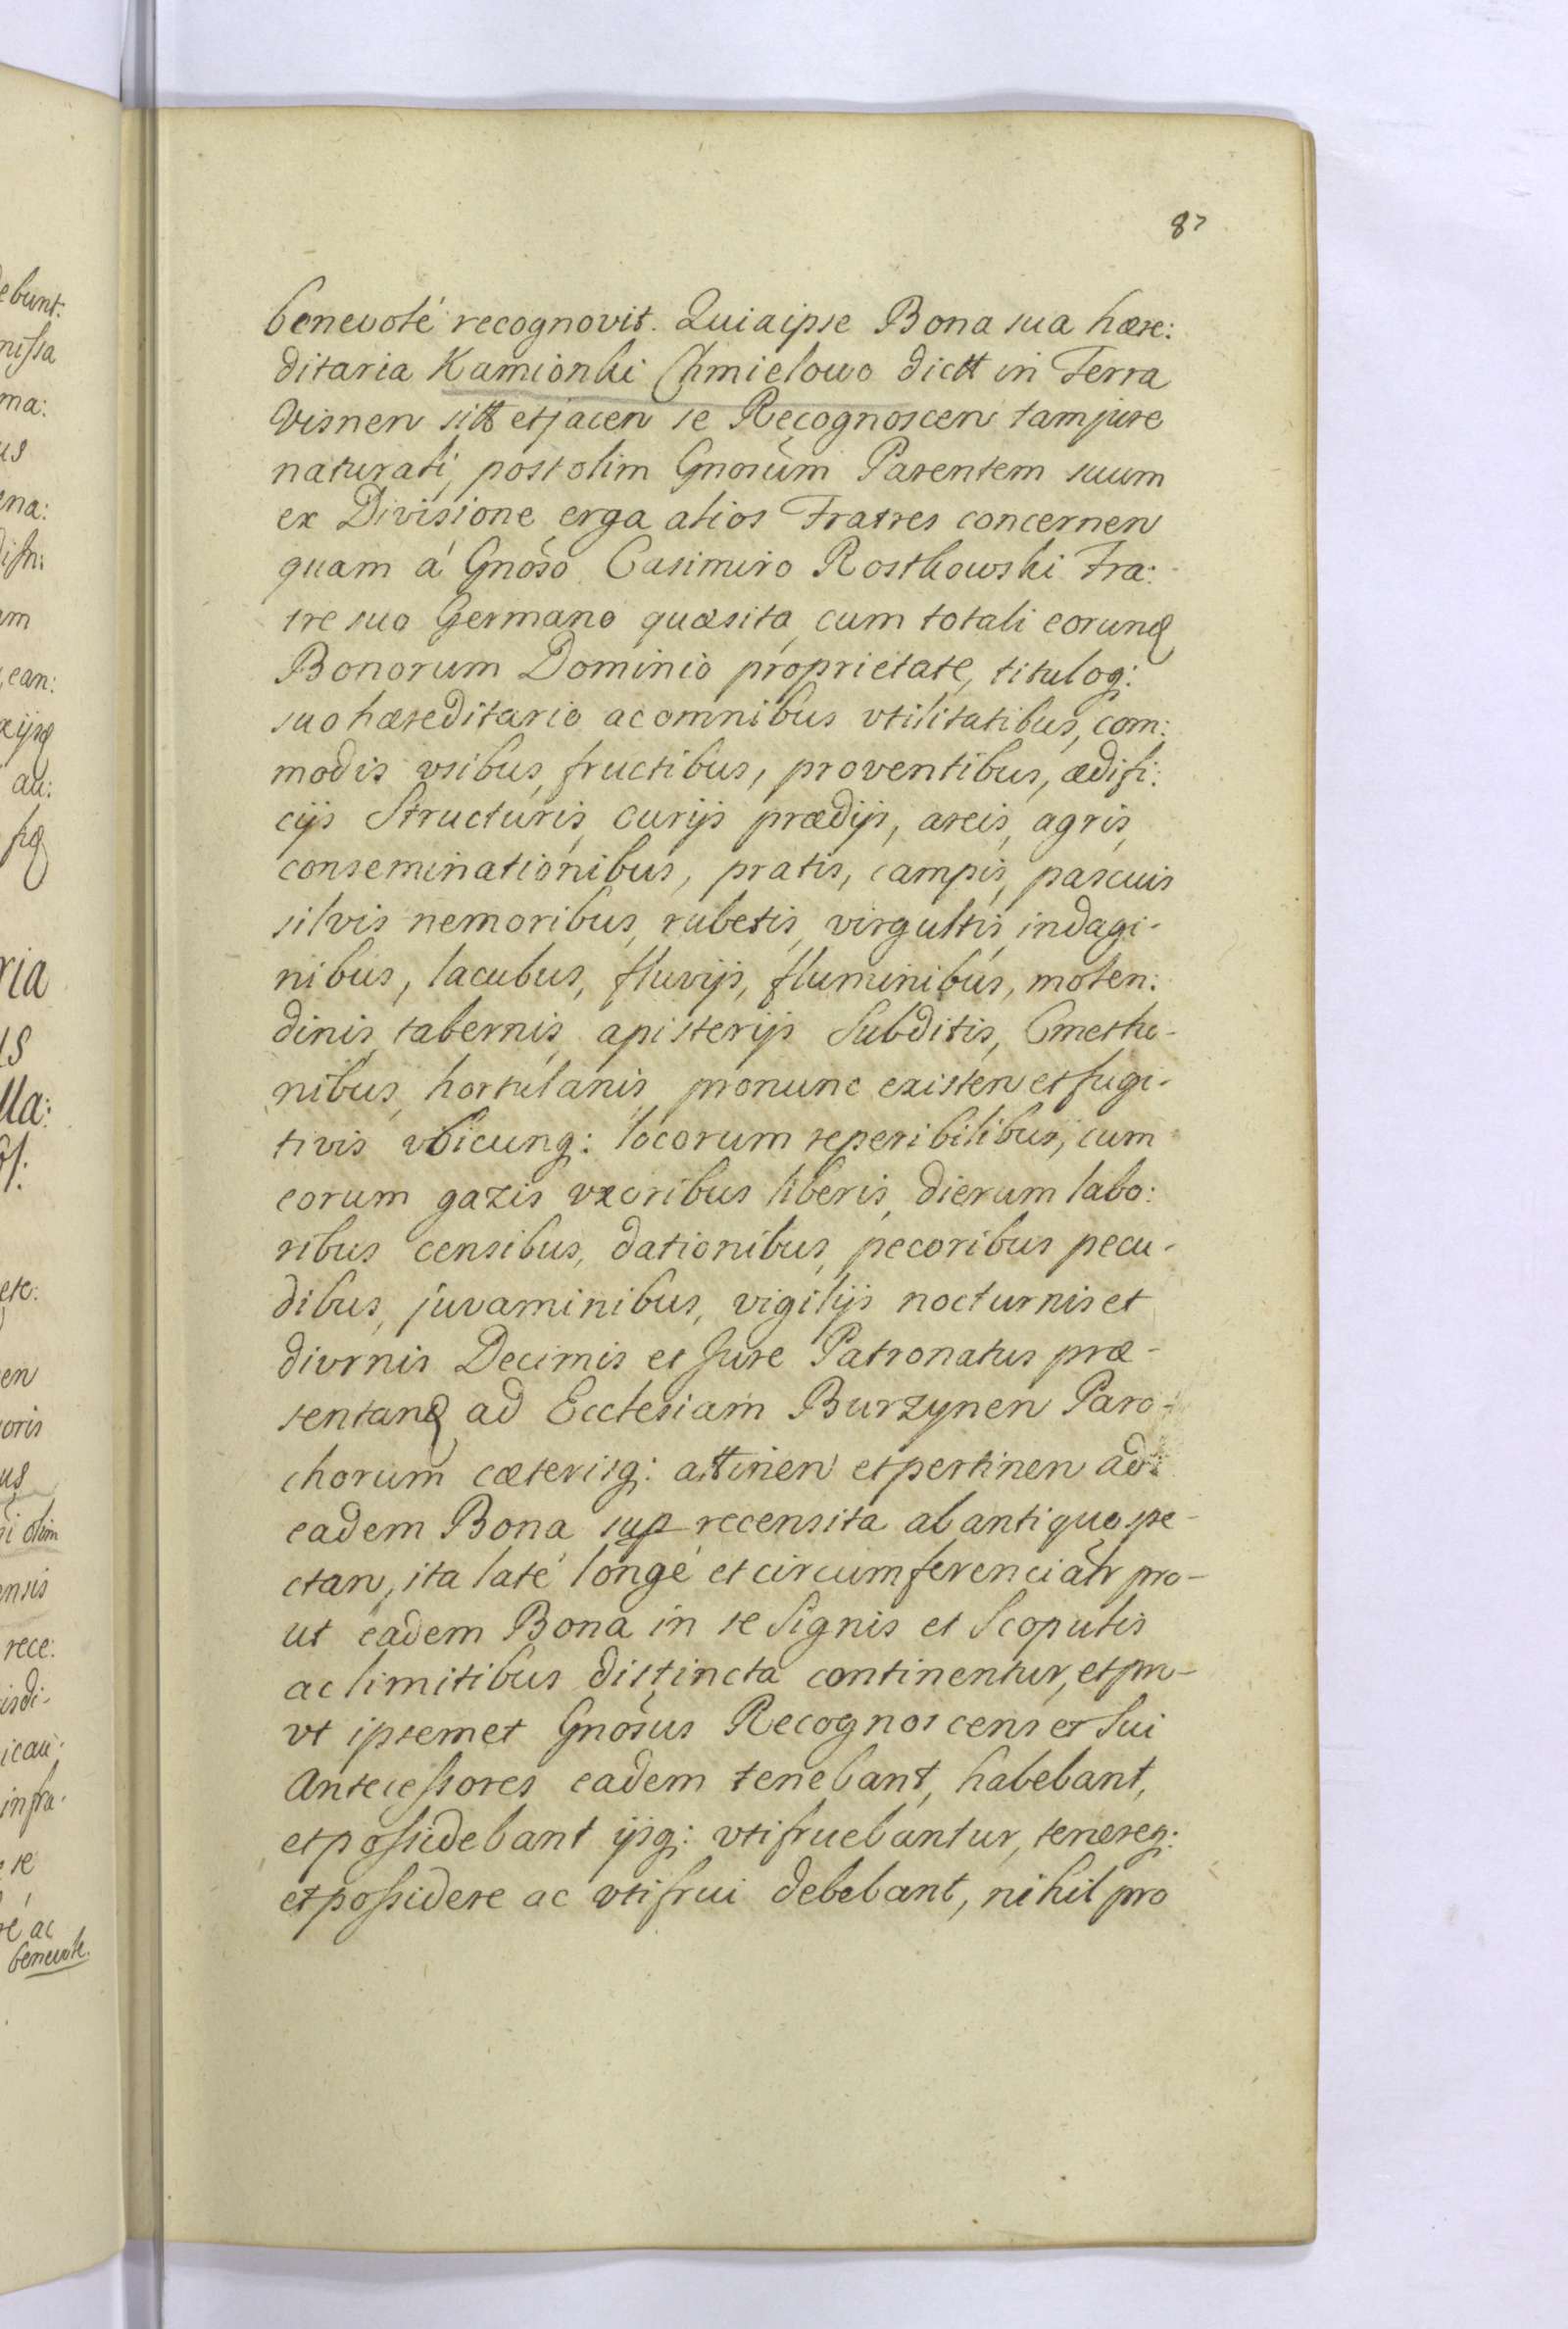 87
benevolé recognovit. Quia ipse Bona sua hære:
ditaria Kamionki Chmielowo dictt in Terra
Visnen sitt et jacen se Recognoscen tam jure
naturali, post olim Gnosum Parentem suum
ex Divisione erga alios Fratres concernen
quam á Gnoso Casimiro Rostkowski Fra:
tre suo Germano quæsita, cum totali eorund
Bonorum Dominio proprietate, tituloq:
suo hæreditario ac omnibus vtilitatibus, com:
modis vsibus, fructibus, proventibus, ædifi:
cijs Structuris, curijs prædijs, areis, agris,
conseminationibus, pratis, campis, pascuis
silvis nemoribus, rubetis, virgultis, indagi-
nibus, lacubus, fluvijs, fluminibus, molen:
dinis, tabernis, apisterijs Subditis, Cmetho-
nibus, hortulanis, pronunc existen et fugi-
tivis vbicunq: locorum reperibilibus, cum
eorum gazis vxoribus liberis, dierum labo:
ribus censibus, dationibus, pecoribus pecu-
dibus, juvaminibus, vigilijs nocturnis et
divrnis Decimis et Jure Patronatus præ-
sentand ad Ecclesiam Burzynen Paro-
chorum cæterisq: attinen et pertinen ad
eadem Bona sup recensita ab antiquo spe-
ctan, ita laté longé et circumferencialr pro-
ut eadem Bona in se Signis et Scopulis
ac limitibus distincta continentur, et pro-
vt ipsemet Gnosus Recognoscens et Sui
Antecessores eadem tenebant, habebant,
et possidebant ijsq: vtifruebantur, tenereq:
et possidere ac vtifrui debebant, nihil pro